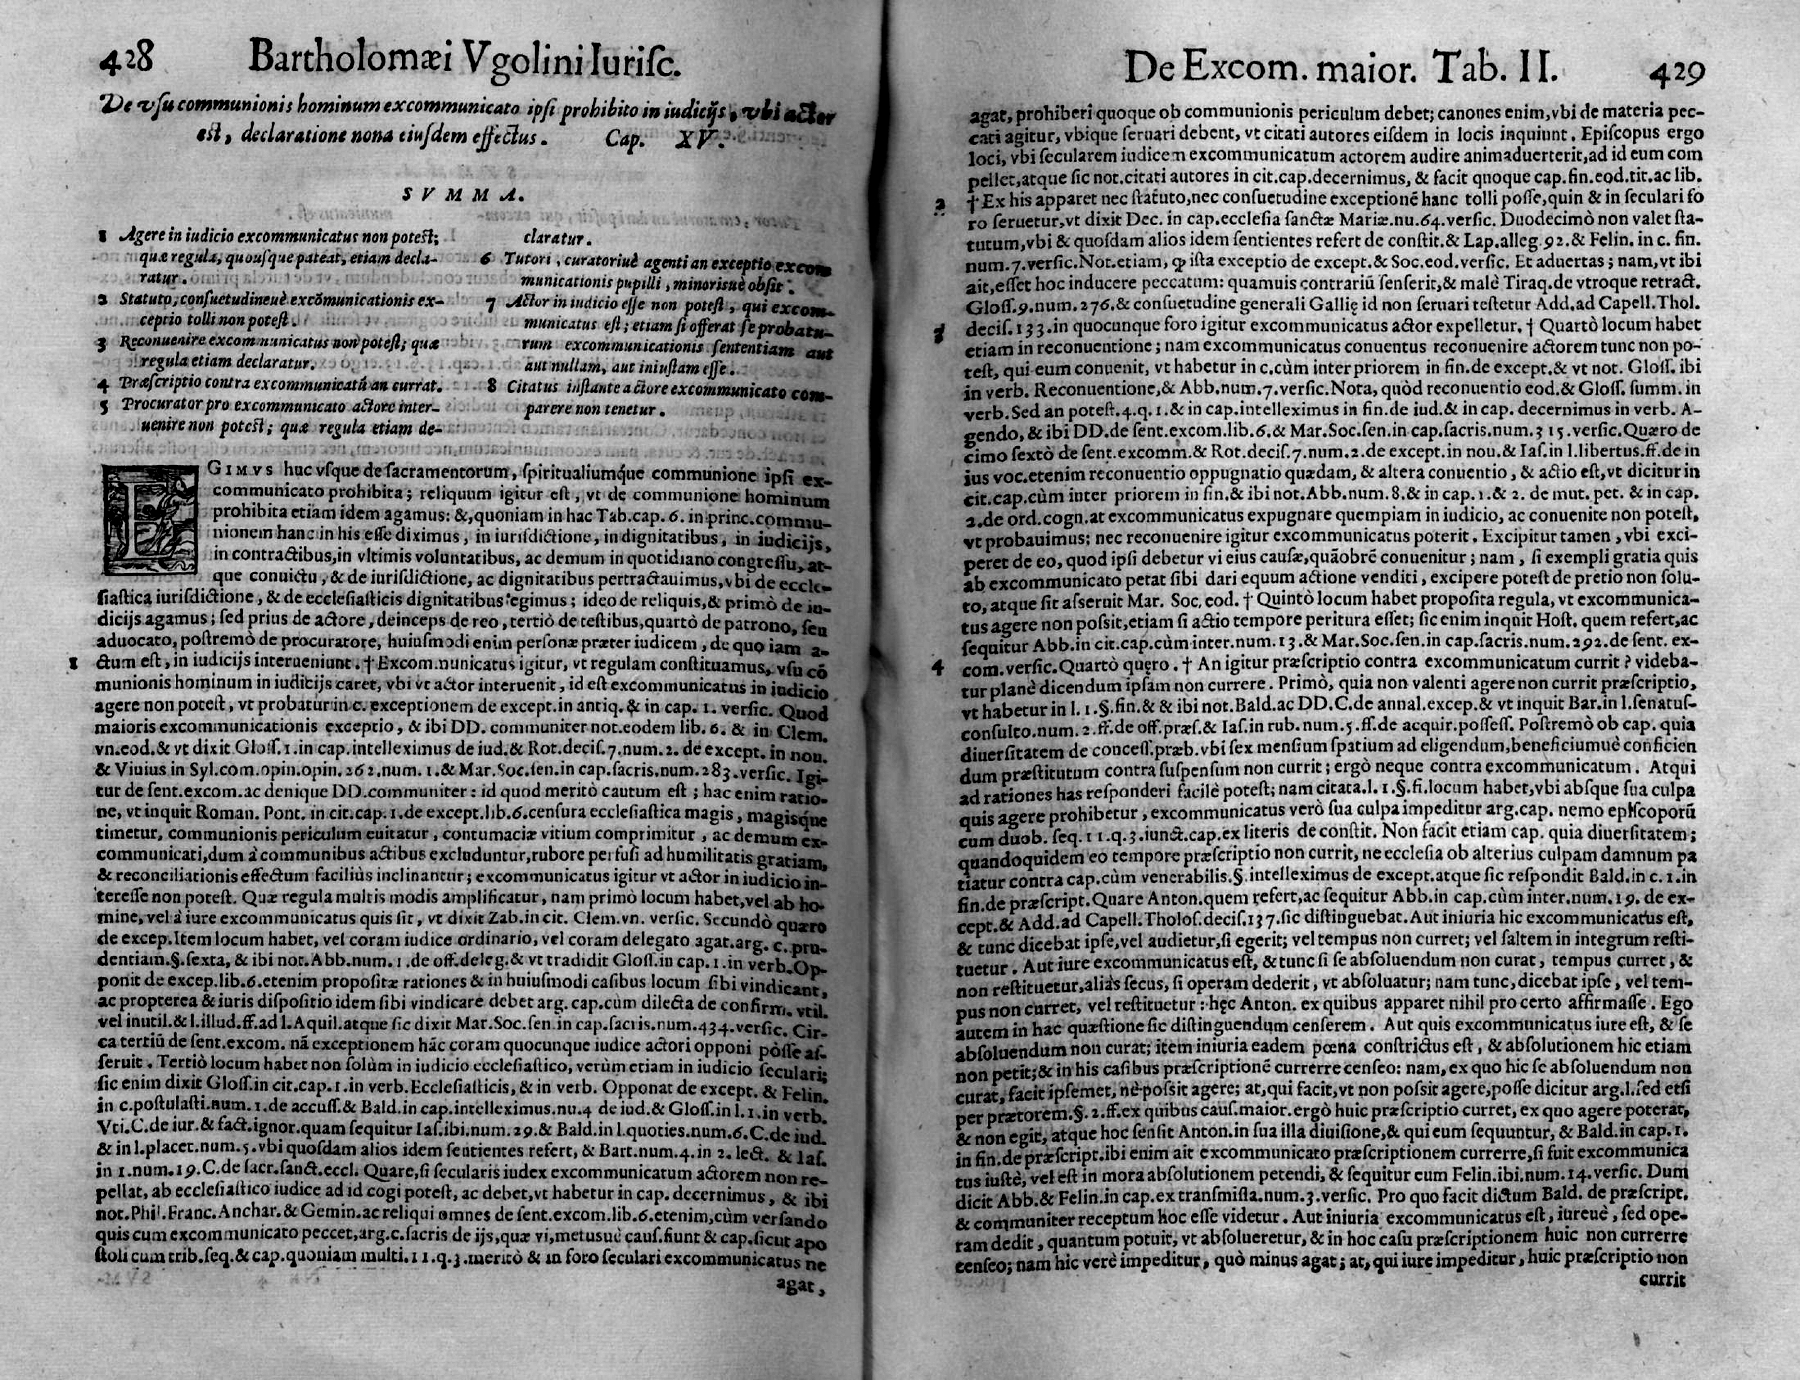 428 Bartholomæi Vgolini Iurisc.
De vsu communionis hominum excommunicato ipsi prohibito in iudicijs, vbi actor
est, declaratione nona eiusdem effectus. Cap. XV.
SVMMA.
1 Agere in iudicio excommunicatus non potest;
quæ regula, quousque pateat, etiam decla-
ratur.
2 Statuto, consuetudineuè excõmunicationis ex-
ceptio tolli non potest.
3 Reconuenire excommunicatus non potest; quæ
regula etiam declaratur.
4 Præscriptio contra excommunicatũ an currat.
5 Procurator pro excommunicato actore inter-
uenire non potest; quæ regula etiam de-
claratur.
6 Tutori, curatoriuè agenti an exceptio excom
municationis pupilli, minorisuè obsit.
7 Actor in iudicio esse non potest, qui excom-
municatus est; etiam si offerat se probatu-
rum excommunicationis sententiam aut
aut nullam, aut iniustam esse.
8 Citatus instante actore excommunicato com-
parere non tenetur.
EGIMVS huc vsque de sacramentorum, spiritualiumq́ue communione ipsi ex-
communicato prohibita; reliquum igitur est, vt de communione hominum
prohibita etiam idem agamus: &, quoniam in hac Tab. cap. 6. in princ. commu-
nionem hanc in his esse diximus, in iurisdictione, in dignitatibus, in iudicijs,
in contractibus, in vltimis voluntatibus, ac demum in quotidiano congressu, at-
que conuictu, & de iurisdictione, ac dignitatibus pertractauimus, vbi de eccle-
siastica iurisdictione, & de ecclesiasticis dignitatibus egimus; ideo de reliquis, & primò de iu-
dicijs agamus; sed prius de actore, deinceps de reo, tertiò de testibus, quartò de patrono, seu
aduocato, postremò de procuratore, huiusmodi enim personæ præter iudicem, de quo iam a-
1 ctum est, in iudicijs interueniunt. † Excommunicatus igitur, vt regulam constituamus, vsu cõ
munionis hominum in iudicijs caret, vbi vt actor interuenit, id est excommunicatus in iudicio
agere non potest, vt probatur in c. exceptionem de except. in antiq. & in cap. 1. versic. Quod
maioris excommunicationis exceptio, & ibi DD. communiter not. eodem lib. 6. & in Clem.
vn. eod. & vt dixit Gloss. 1. in cap. intelleximus de iud. & Rot. decis. 7. num. 2. de except. in nou.
& Viuius in Syl. com. opin. opin. 262. num. 1. & Mar. Soc. sen. in cap. sacris. num. 283. versic. Igi-
tur de sent. excom. ac denique DD. communiter: id quod meritò cautum est; hac enim ratio-
ne, vt inquit Roman. Pont. in cit. cap. 1. de except. lib. 6. censura ecclesiastica magis, magisque
timetur, communionis periculum euitatur, contumaciæ vitium comprimitur, ac demum ex-
communicati, dum à communibus actibus excluduntur, rubore perfusi ad humilitatis gratiam,
& reconciliationis effectum faciliùs inclinantur; excommunicatus igitur vt actor in iudicio in-
teresse non potest. Quæ regula multis modis amplificatur, nam primò locum habet, vel ab ho-
mine, vel à iure excommunicatus quis sit, vt dixit Zab. in cit. Clem. vn. versic. Secundò quæro
de excep. Item locum habet, vel coram iudice ordinario, vel coram delegato agat. arg. c. pru-
dentiam. §. sexta, & ibi not. Abb. num. 1. de off. deleg. & vt tradidit Gloss. in cap. 1. in verb. Op-
ponit de excep. lib. 6. etenim propositæ rationes & in huiusmodi casibus locum sibi vindicant,
ac propterea & iuris dispositio idem sibi vindicare debet arg. cap. cùm dilecta de confirm. vtil.
vel inutil. & l. illud. ff. ad l. Aquil. atque sic dixit Mar. Soc. sen. in cap. sacris. num. 434. versic. Cir-
ca tertiũ de sent. excom. nã exceptionem hãc coram quocunque iudice actori opponi pòsse as-
seruit. Tertiò locum habet non solùm in iudicio ecclesiastico, verùm etiam in iudicio seculari;
sic enim dixit Gloss. in cit. cap. 1. in verb. Ecclesiasticis, & in verb. Opponat de except. & Felin.
in c. postulasti. num. 1. de accuss. & Bald. in cap. intelleximus. nu. 4 de iud. & Gloss. in l. 1. in verb.
Vti. C. de iur. & fact. ignor. quam sequitur Ias. ibi. num. 29. & Bald. in l. quoties. num. 6. C. de iud.
& in l. placet. num. 5. vbi quosdam alios idem sentientes refert, & Bart. num. 4. in 2. lect. & Ias.
in 1. num. 19. C. de sacr. sanct. eccl. Quare, si secularis iudex excommunicatum actorem non re-
pellat, ab ecclesiastico iudice ad id cogi potest, ac debet, vt habetur in cap. decernimus, & ibi
not. Phil. Franc. Anchar. & Gemin. ac reliqui omnes de sent. excom. lib. 6. etenim, cùm versando
quis cum excommunicato peccet, arg. c. sacris de ijs, quæ vi, metusuè caus. fiunt & cap. sicut apo
stoli cum trib. seq. & cap. quoniam multi. 11. q. 3. meritò & in foro seculari excommunicatus ne
agat,
De Excom. maior. Tab. II. 429
agat, prohiberi quoque ob communionis periculum debet; canones enim, vbi de materia pec-
cati agitur, vbique seruari debent, vt citati autores eisdem in locis inquiunt. Episcopus ergo
loci, vbi secularem iudicem excommunicatum actorem audire animaduerterit, ad id eum com
pellet, atque sic not. citati autores in cit. cap. decernimus, & facit quoque cap. fin. eod. tit. ac lib.
2 † Ex his apparet nec statuto, nec consuetudine exceptionẽ hanc tolli posse, quin & in seculari fo
ro seruetur, vt dixit Dec. in cap. ecclesia sanctæ Mariæ. nu. 64. versic. Duodecimò non valet sta-
tutum, vbi & quosdam alios idem sentientes refert de constit. & Lap. alleg. 92. & Felin. in c. fin.
num. 7. versic. Not. etiam, ꝙ ista exceptio de except. & Soc. eod. versic. Et aduertas; nam, vt ibi
ait, esset hoc inducere peccatum: quamuis contrariũ senserit, & malè Tiraq. de vtroque retract.
Gloss. 9. num. 276. & consuetudine generali Gallię id non seruari testetur Add. ad Capell. Thol.
3 decis. 133. in quocunque foro igitur excommunicatus actor expelletur. † Quartò locum habet
etiam in reconuentione; nam excommunicatus conuentus reconuenire actorem tunc non po-
test, qui eum conuenit, vt habetur in c. cùm inter priorem in fin. de except. & vt not. Gloss. ibi
in verb. Reconuentione, & Abb. num. 7. versic. Nota, quòd reconuentio eod. & Gloss. summ. in
verb. Sed an potest. 4. q. 1. & in cap. intelleximus in fin. de iud. & in cap. decernimus in verb. A-
gendo, & ibi DD. de sent. excom. lib. 6. & Mar. Soc. sen. in cap. sacris. num. 315. versic. Quæro de
cimo sextò de sent. excomm. & Rot. decis. 7. num. 2. de except. in nou. & Ias. in l. libertus. ff. de in
ius voc. etenim reconuentio oppugnatio quædam, & altera conuentio, & actio est, vt dicitur in
cit. cap. cùm inter priorem in fin. & ibi not. Abb. num. 8. & in cap. 1. & 2. de mut. pet. & in cap.
2. de ord. cogn. at excommunicatus expugnare quempiam in iudicio, ac conuenite non potest,
vt probauimus; nec reconuenire igitur excommunicatus poterit. Excipitur tamen, vbi exci-
peret de eo, quod ipsi debetur vi eius causæ, quãobrẽ conuenitur; nam, si exempli gratia quis
ab excommunicato petat sibi dari equum actione venditi, excipere potest de pretio non solu-
to, atque sit asseruit Mar. Soc. eod. † Quintò locum habet proposita regula, vt excommunica-
tus agere non possit, etiam si actio tempore peritura esset; sic enim inquit Host. quem refert, ac
sequitur Abb. in cit. cap. cùm inter. num. 13. & Mar. Soc. sen. in cap. sacris. num. 292. de sent. ex-
4 com. versic. Quartò quęro. † An igitur præscriptio contra excommunicatum currit? videba-
tur planè dicendum ipsam non currere. Primò, quia non valenti agere non currit præscriptio,
vt habetur in l. 1. §. fin. & & ibi not. Bald. ac DD. C. de annal. excep. & vt inquit Bar. in l. senatus-
consulto. num. 2. ff. de off. præs. & Ias. in rub. num. 5. ff. de acquir. possess. Postremò ob cap. quia
diuersitatem de concess. præb. vbi sex mensium spatium ad eligendum, beneficiumuè conficien
dum præstitutum contra suspensum non currit; ergò neque contra excommunicatum. Atqui
ad rationes has responderi facilè potest; nam citata. l. 1. §. fi. locum habet, vbi absque sua culpa
quis agere prohibetur, excommunicatus verò sua culpa impeditur arg. cap. nemo episcoporũ
cum duob. seq. 11. q. 3. iunct. cap. ex literis de constit. Non facit etiam cap. quia diuersitatem;
quandoquidem eo tempore præscriptio non currit, ne ecclesia ob alterius culpam damnum pa
tiatur contra cap. cùm venerabilis. §. intelleximus de except. atque sic respondit Bald. in c. 1. in
fin. de præscript. Quare Anton. quem refert, ac sequitur Abb. in cap. cùm inter. num. 19. de ex-
cept. & Add. ad Capell. Tholos. decis. 137. sic distinguebat. Aut iniuria hic excommunicatus est,
& tunc dicebat ipse, vel audietur, si egerit; vel tempus non curret; vel saltem in integrum resti-
tuetur. Aut iure excommunicatus est, & tunc si se absoluendum non curat, tempus curret, &
non restituetur, aliàs secus, si operam dederit, vt absoluatur; nam tunc, dicebat ipse, vel tem-
pus non curret, vel restituetur: hęc Anton. ex quibus apparet nihil pro certo affirmasse. Ego
autem in hac quæstione sic distinguendum censerem. Aut quis excommunicatus iure est, & se
absoluendum non curat; item iniuria eadem pœna constrictus est, & absolutionem hic etiam
non petit; & in his casibus præscriptionẽ currerre censeo: nam, ex quo hic se absoluendum non
curat, facit ipsemet, nè possit agere; at, qui facit, vt non possit agere, posse dicitur arg. l. sed etsi
per prætorem. §. 2. ff. ex quibus caus. maior. ergò huic præscriptio curret, ex quo agere poterat,
& non egit, atque hoc sensit Anton. in sua illa diuisione, & qui eum sequuntur, & Bald. in cap. 1.
in fin. de præscript. ibi enim ait excommunicato præscriptionem currerre, si fuit excommunica
tus iustè, vel est in mora absolutionem petendi, & sequitur eum Felin. ibi. num. 14. versic. Dum
dicit Abb. & Felin. in cap. ex transmissa. num. 3. versic. Pro quo facit dictum Bald. de præscript.
& communiter receptum hoc esse videtur. Aut iniuria excommunicatus est, iureuè, sed ope-
ram dedit, quantum potuit, vt absolueretur, & in hoc casu præscriptionem huic non currerre
censeo; nam hic verè impeditur, quò minus agat; at, qui iure impeditur, huic præscriptio non
currit